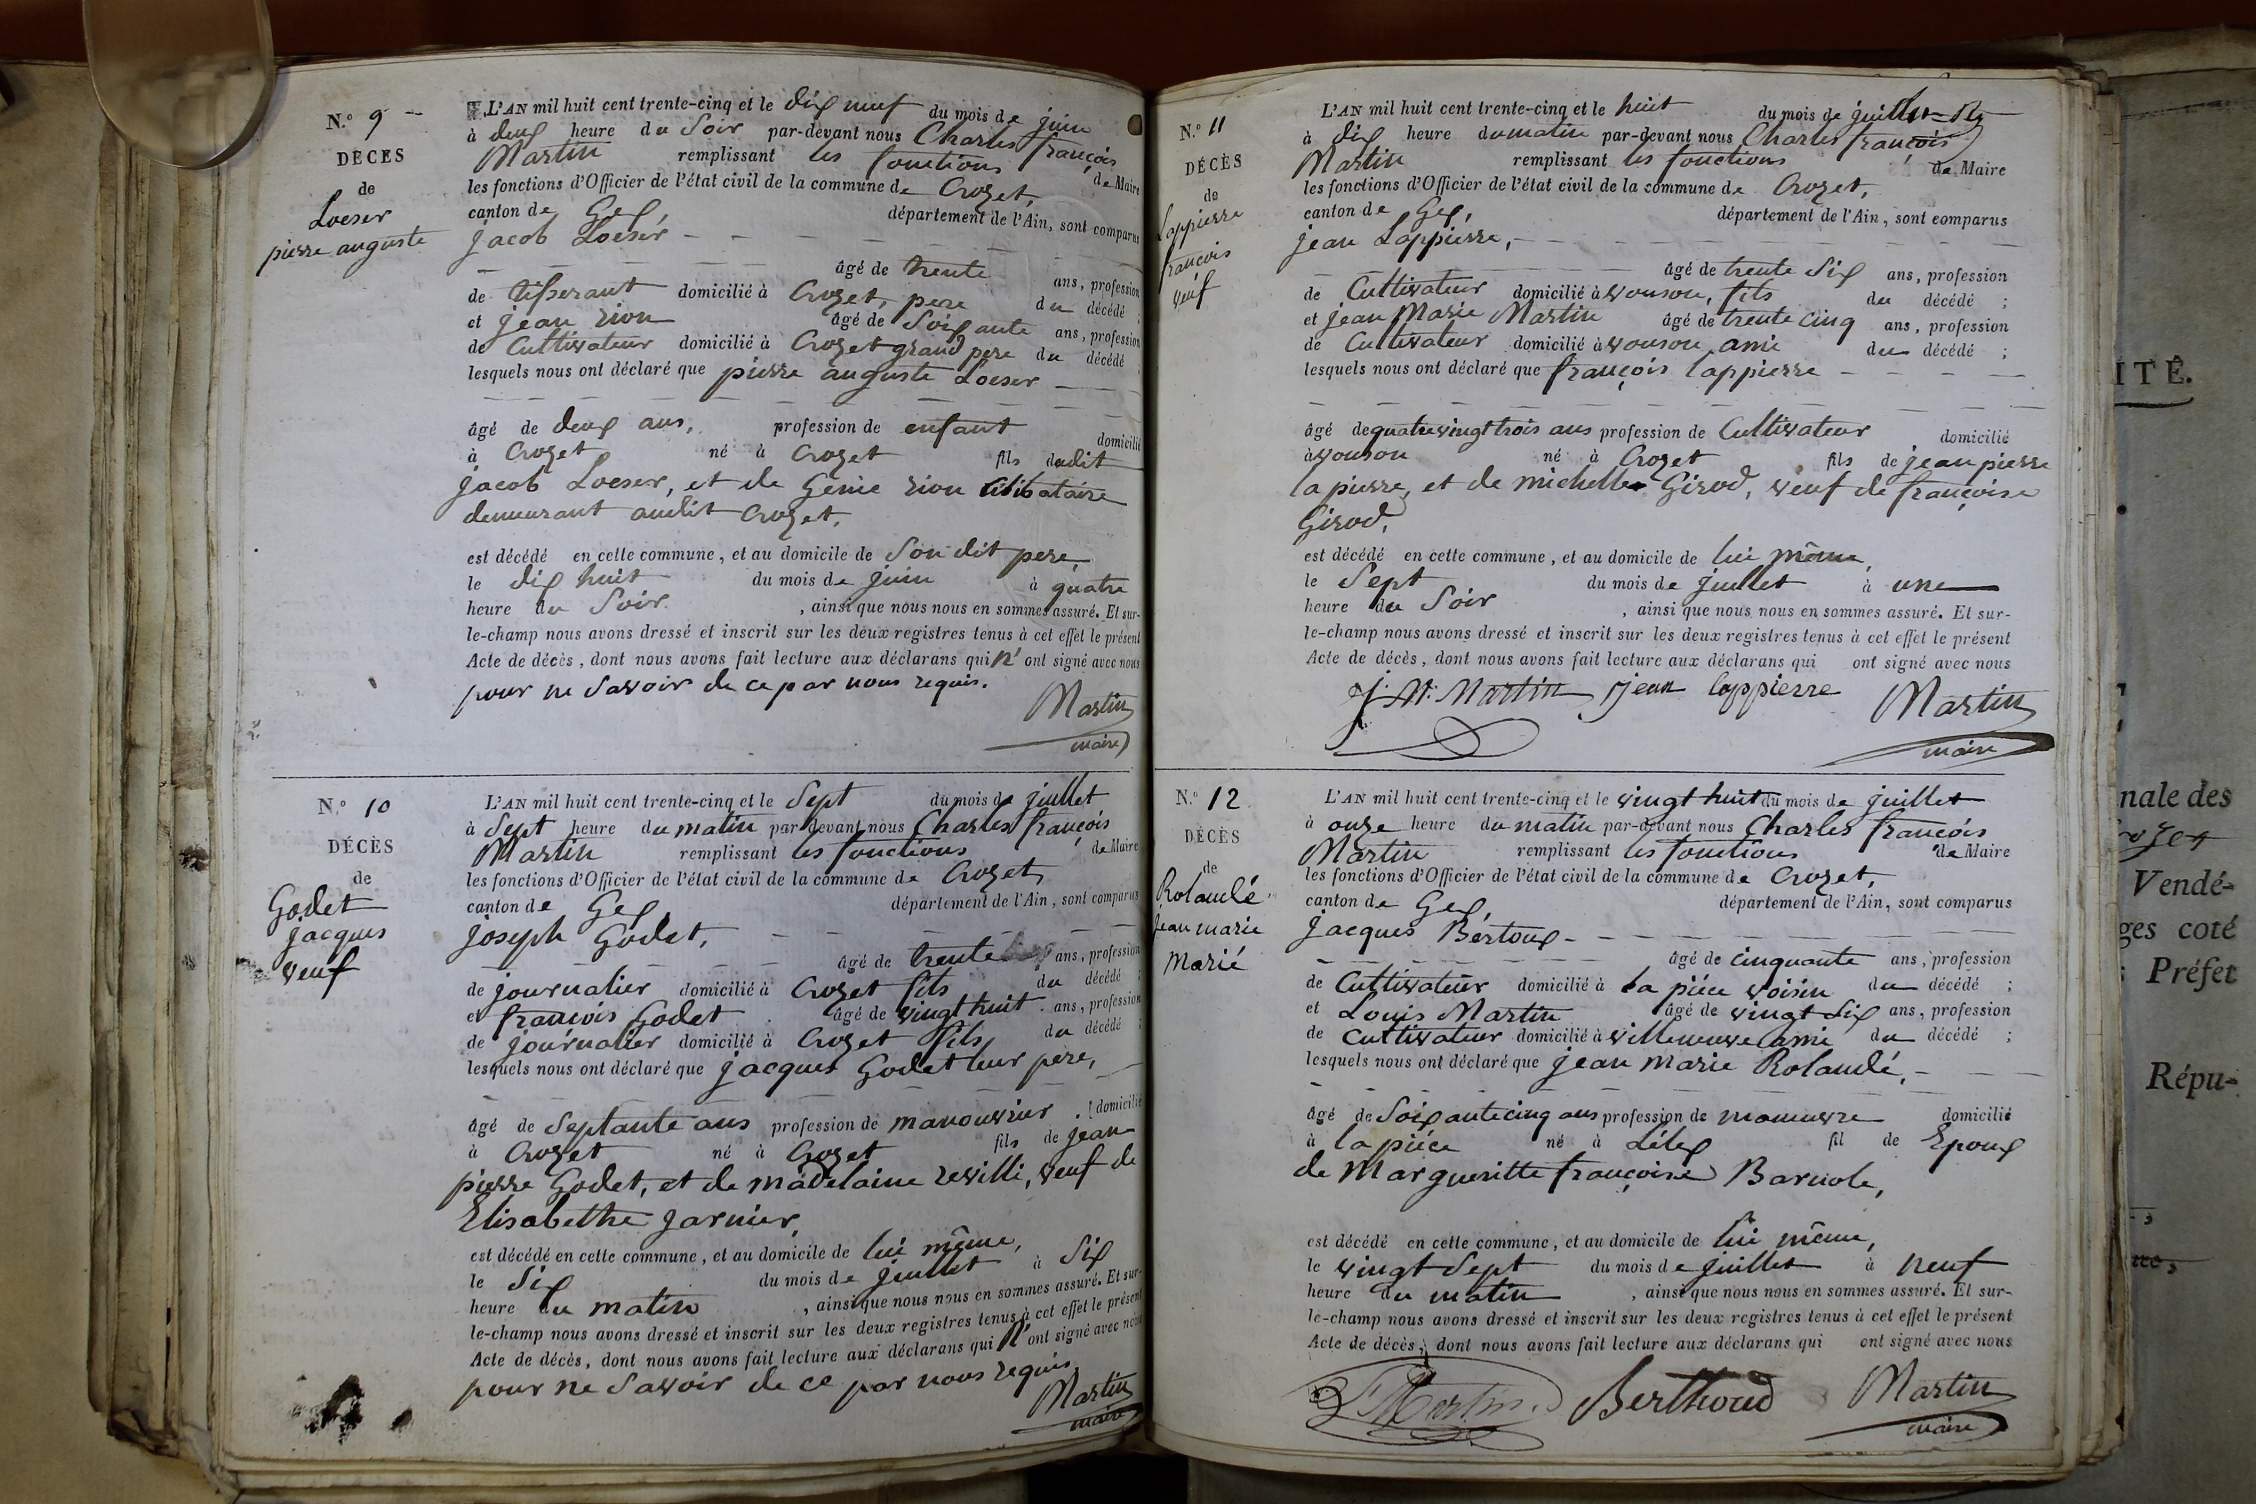 N.o 9
DÉCES
de
Loeser
pierre auguste
L'AN mil huit cent trente-cinq et le dix neuf du mois de juin
à deux heure du Soir par-devant nous Charles françois
Martin remplissant les fonctions de Maire
les fonctions d'Officier de l'état civil de la commune de Crozet,
canton de Gex, département de l'Ain, sont comparus
jacob Loeser
âgé de trente ans, profession
de tisserant domicilié à Crozet, pere du décédé ;
et jean rion âgé de Soixante ans, profession
de Cultivateur domicilié à Crozet grand pere du décédé
lesquels nous ont déclaré que pierre auguste Loeser
âgé de deux ans, profession de enfant domicilié
à Crozet né à Crozet fils dudit
jacob Loeser, et de Genie rion Cilibataire
demeurant audit Crozet,
est décédé en cette commune, et au domicile de Son dit pere,
le dix huit du mois de juin à quatre
heure du Soir, ainsi que nous nous en sommes assuré. Et sur-
le-champ nous avons dressé et inscrit sur les deux registres tenus à cet effet le présent
Acte de décès, dont nous avons fait lecture aux déclarans qui n'ont signé avec nous
pour ne Savoir de ce par nous requis.
Martin
maire
N.o 10
DÉCÈS
de
Godet
jacques
veuf
L'AN mil huit cent trente-cinq et le Sept du mois de juillet
à Sept heure du matin par devant nous Charles françois
Martin remplissant les fonctions de Maire
les fonctions d'Officier de l'état civil de la commune de Crozet,
canton de Gex, département de l'Ain, sont comparus
joseph Godet,
âgé de trente ans, profession
de journalier domicilié à Crozet fils du décédé ;
et françois Godet âgé de vingt huit ans, profession
de journalier domicilié à Crozet fils du décédé ;
lesquels nous ont déclaré que jacques Godet leur pere,
âgé de Septante ans profession de manouvrier domicilié
à Crozet né à Crozet fils de jean
pierre Godet, et de madelaine revilli, veuf de
Elisabethe garnier,
est décédé en cette commune, et au domicile de lui même,
le Six du mois de juillet à Six
heure du matin, ainsi que nous nous en sommes assuré. Et sur-
le-champ nous avons dressé et inscrit sur les deux registres tenus à cet effet le présent
Acte de décès, dont nous avons fait lecture aux déclarans qui n'ont signé avec nous
pour ne Savoir de ce par nous requis
Martin
maire
N.o 11
DÉCÈS
de
Lappierre
francois
veuf
L'AN mil huit cent trente-cinq et le huit du mois de juillet
à dix heure du matin par-devant nous Charles françois
Martin remplissant les fonctions de Maire
les fonctions d'Officier de l'état civil de la commune de Crozet,
canton de Gex, département de l'Ain, sont comparus
jean Lappierre,
âgé de trente Six ans, profession
de Cultivateur domicilié à vouson, fils du décédé ;
et jean Marie Martin âgé de trente cinq ans, profession
de Cultivateur domicilié à vouson ami du décédé ;
lesquels nous ont déclaré que françois lappierre
âgé de quatre vingt trois ans profession de Cultivateur domicilié
à vouson né à Crozet fils de jean pierre
lapierre, et de michelle Girod, veuf de françoise
Girod,
est décédé en cette commune, et au domicile de lui même,
le Sept du mois de juillet à une
heure du Soir, ainsi que nous nous en sommes assuré. Et sur-
le-champ nous avons dressé et inscrit sur les deux registres tenus à cet effet le présent
Acte de décès, dont nous avons fait lecture aux déclarans qui ont signé avec nous
j. M. Martin jean lappierre Martin
maire
N.o 12
DÉCÈS
de
Rolandé
jean marie
Marié
L'AN mil huit cent trente-cinq et le vingt huit du mois de juillet
à onze heure du matin par-devant nous Charles françois
Martin remplissant les fonctions de Maire
les fonctions d'Officier de l'état civil de la commune de Crozet,
canton de Gex, département de l'Ain, sont comparus
jacques Bértoux
âgé de cinquante ans, profession
de Cultivateur domicilié à la piéce voisin du décédé ;
et Louis Martin âgé de vingt Six ans, profession
de cultivateur domicilié à villeneuve ami du décédé ;
lesquels nous ont déclaré que jean marie Rolandé,
âgé de Soixante cinq ans profession de manuvre domicilié
à la piéce né à Lélex fil de Epoux
de Margueritte françoise Barnole,
est décédé en cette commune, et au domicile de lui même,
le vingt Sept du mois de juillet à neuf
heure du matin, ainsi que nous nous en sommes assuré. Et sur-
le-champ nous avons dressé et inscrit sur les deux registres tenus à cet effet le présent
Acte de décès, dont nous avons fait lecture aux déclarans qui ont signé avec nous
L Martin. Berthoud Martin
maire
ITÉ.
nale des
Vendé-
ges coté
Préfet
Répu-